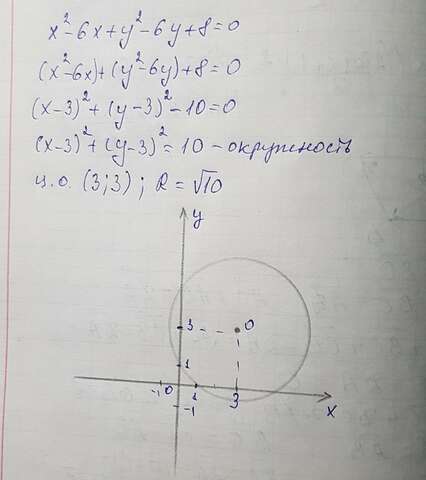 x²-6x+y²-6y+8=0
(x²-6x)+(y²-6y)+8=0
(x-3)²+(y-3)²-10=0
(x-3)²+(y-3)²=10 - окружность
ц.о. (3;3); R=√10
y
3 O
1
-1 0 1 3 x
-1